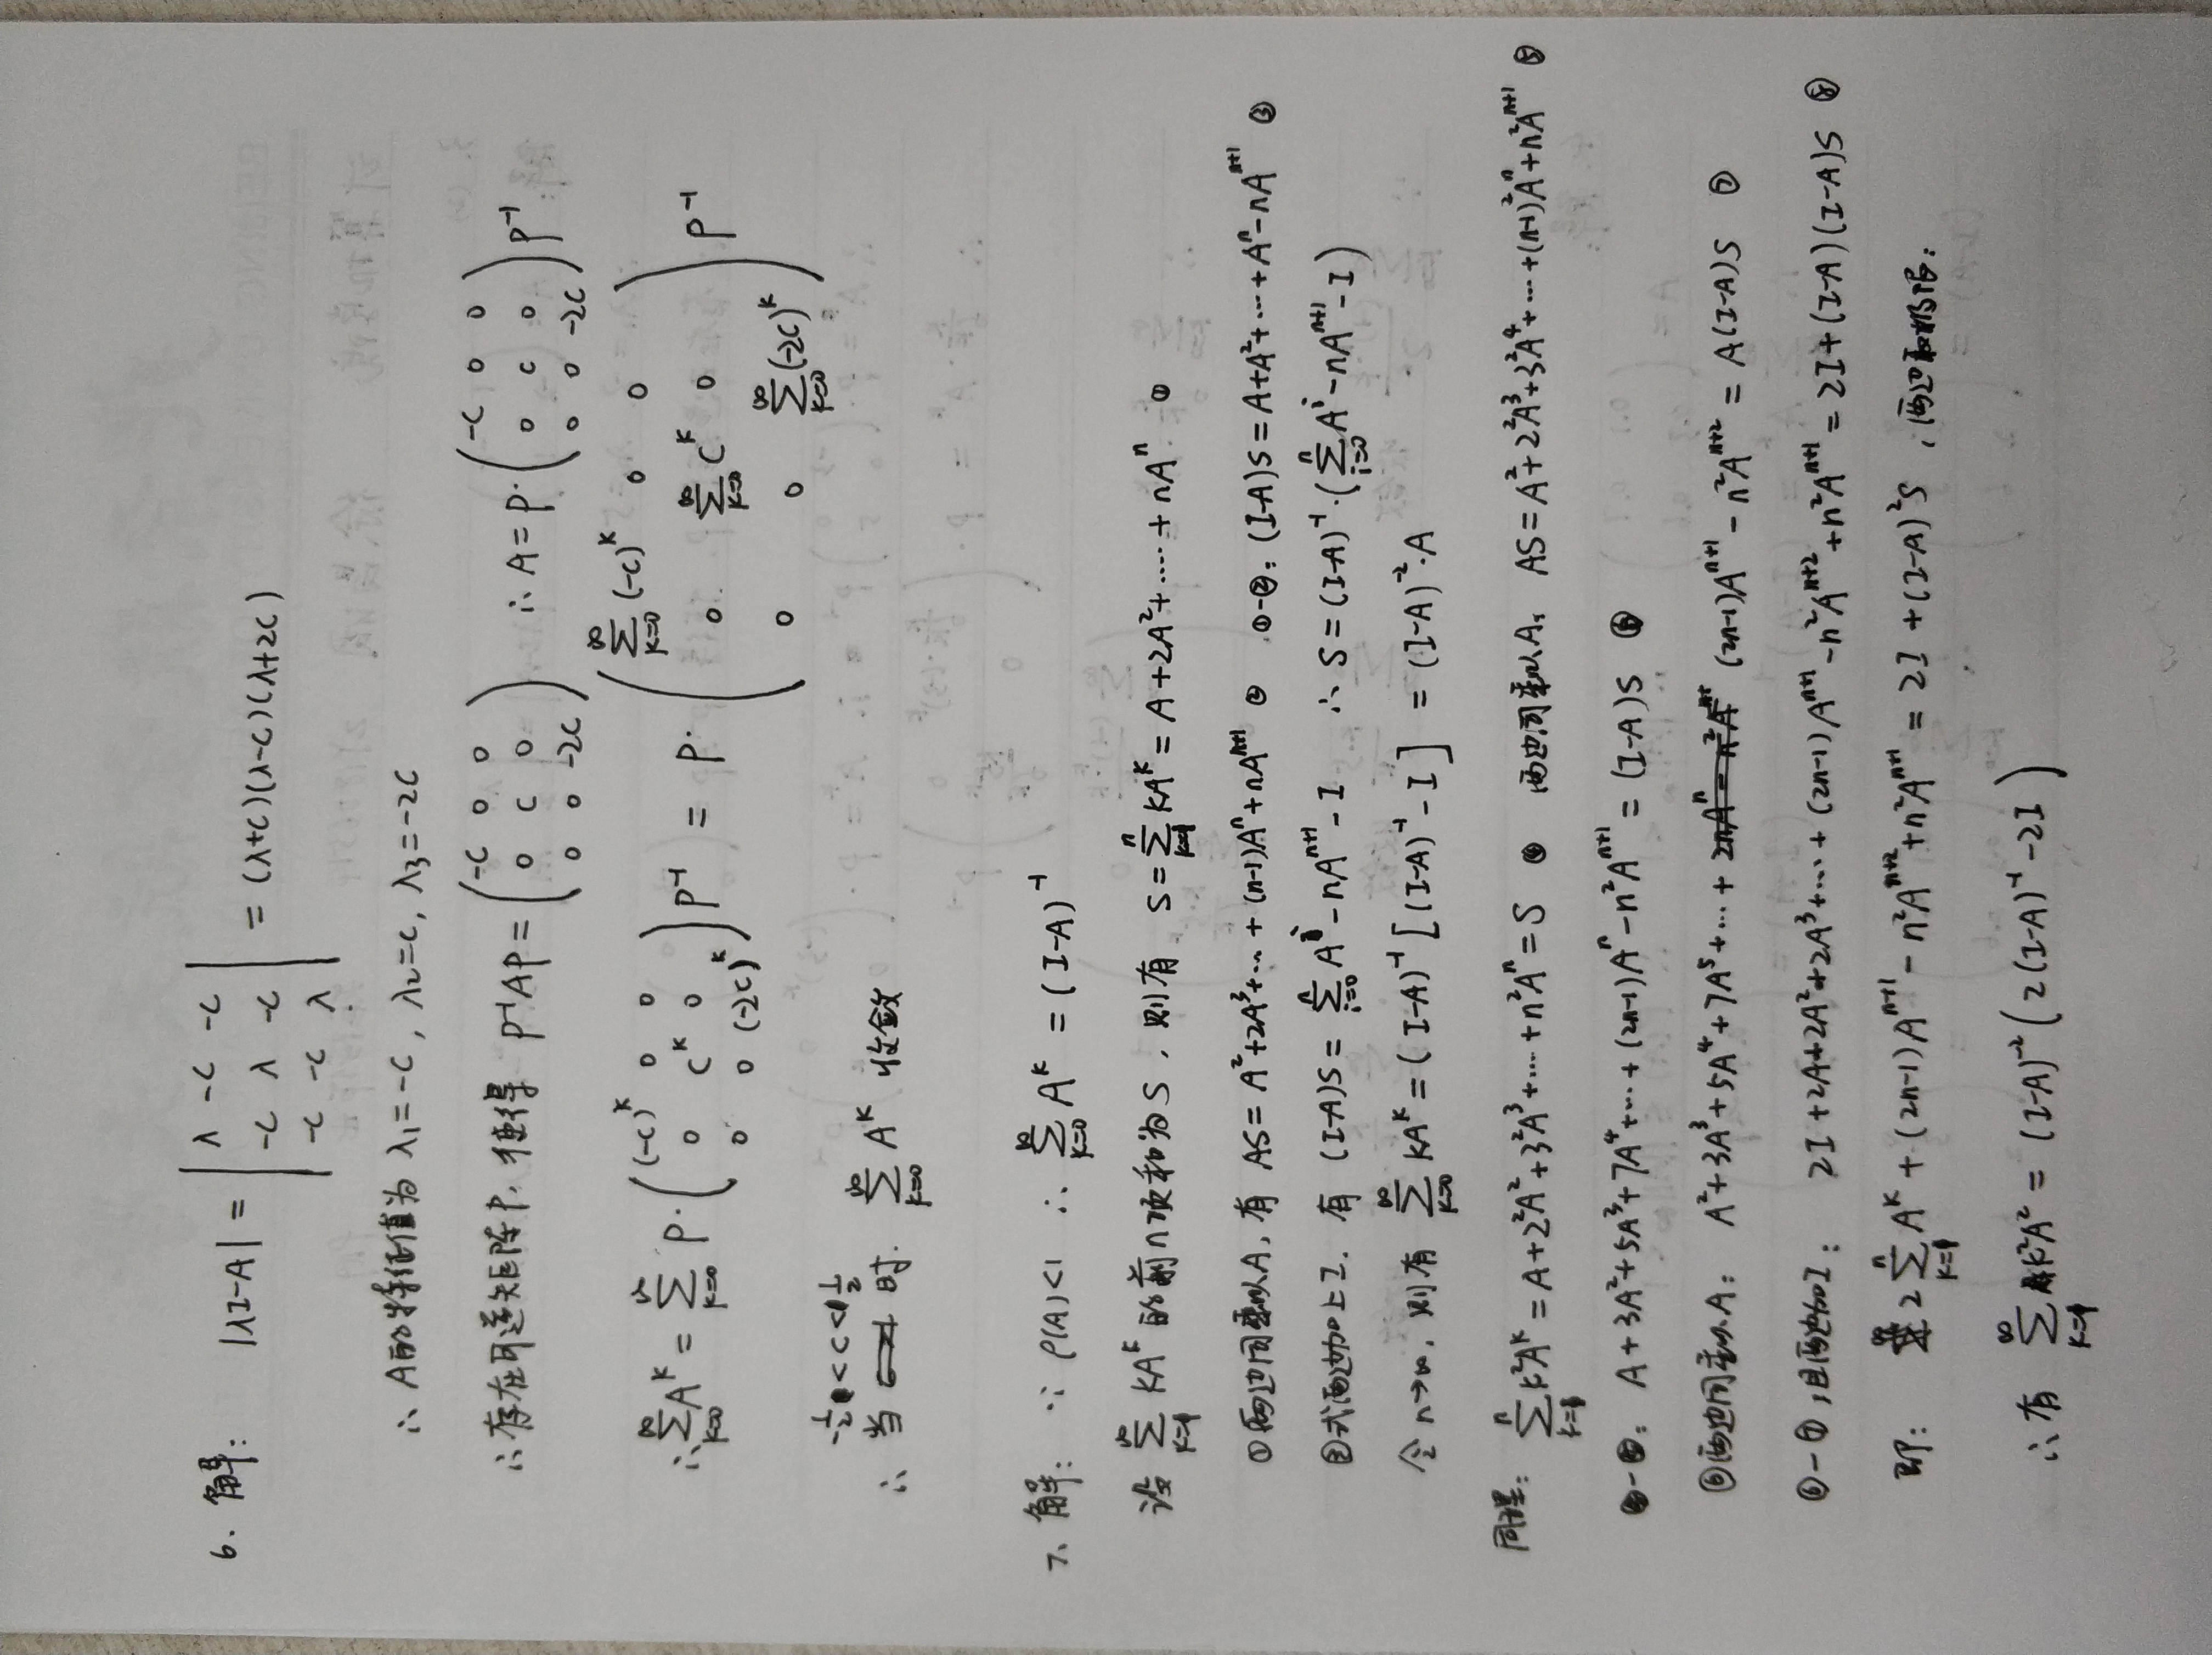 6. 解: |λI-A| = | λ -c -c ; -c λ -c ; -c -c λ | = (λ+c)(λ-c)(λ+2c)
∴ A的特征值为 λ₁=-c, λ₂=c, λ₃=-2c
∴ 存在可逆矩阵P, 使得 P⁻¹AP = ( -c 0 0 ; 0 c 0 ; 0 0 -2c ) ∴ A = P·( -c 0 0 ; 0 c 0 ; 0 0 -2c ) P⁻¹
∴ ∑_{k=0}^{∞} A^k = ∑_{k=0}^{∞} P·( (-c)^k 0 0 ; 0 c^k 0 ; 0 0 (-2c)^k ) P⁻¹ = P·( ∑_{k=0}^{∞}(-c)^k 0 0 ; 0 ∑_{k=0}^{∞}c^k 0 ; 0 0 ∑_{k=0}^{∞}(-2c)^k ) P⁻¹
∴ 当 -1/2<c<1/2 时. ∑_{k=0}^{∞} A^k 收敛
7. 解: ∵ ρ(A)<1 ∴ ∑_{k=0}^{∞} A^k = (I-A)⁻¹
设 ∑_{k=1}^{∞} kA^k 的前n项和为S, 则有 S = ∑_{k=1}^{n} kA^k = A+2A²+……+nA^n ①
①两边同乘以A, 有 AS = A²+2A³+…+(n-1)A^n+nA^{n+1} ② ①-②: (I-A)S = A+A²+…+A^n-nA^{n+1} ③
③式两边加上I. 有 (I-A)S = ∑_{i=0}^{n} A^i-nA^{n+1}-I ∴ S = (I-A)⁻¹·(∑_{i=0}^{n} A^i-nA^{n+1}-I)
令 n→∞, 则有 ∑_{k=0}^{∞} kA^k = (I-A)⁻¹[(I-A)⁻¹-I] = (I-A)⁻²·A
同理: ∑_{k=1}^{n} k²A^k = A+2²A²+3²A³+……+n²A^n = S ④ 两边同乘以A, AS = A²+2²A³+3²A⁴+…+(n-1)²A^n+n²A^{n+1} ⑤
④-⑤: A+3A²+5A³+7A⁴+…+(2n-1)A^n-n²A^{n+1} = (I-A)S ⑥
⑥两边同乘以A: A²+3A³+5A⁴+7A⁵+…+(2n-1)A^{n+1}-n²A^{n+2} = A(I-A)S ⑦
⑥-⑦,且两边加I: 2I+2A+2A²+2A³+…+(2n-1)A^{n+1}-n²A^{n+2}+n²A^{n+1} = 2I+(I-A)(I-A)S ⑧
即: 2∑_{k=1}^{n} A^k+(2n-1)A^{n+1}-n²A^{n+2}+n²A^{n+1} = 2I+(I-A)²S, 两边取极限:
∴有 ∑_{k=1}^{∞} k²A² = (I-A)⁻²(2(I-A)⁻¹-2I)